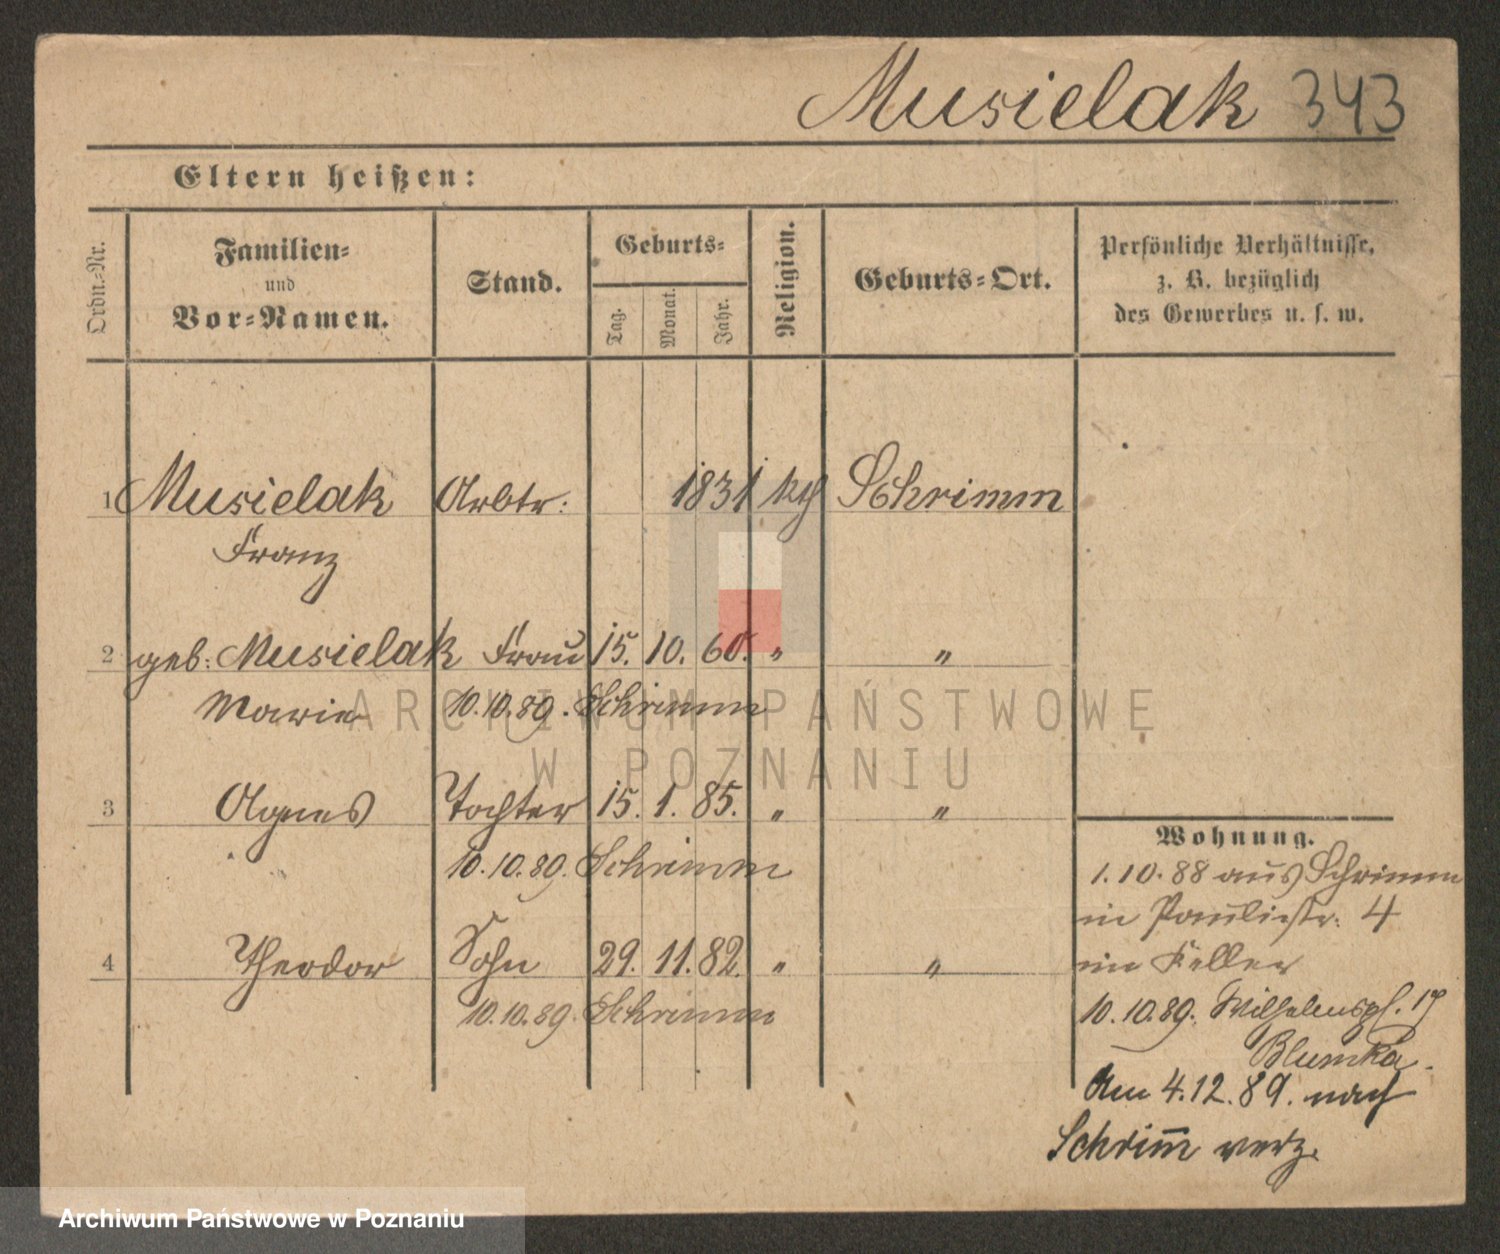 Musielak 343
Eltern heißen:
Ordn.-Nr.
Familien-
und
Vor-Namen.
Stand.
Geburts-
Tag.
Monat.
Jahr.
Religion.
Geburts-Ort.
Persönliche Verhältnisse,
z. B. bezüglich
des Gewerbes u. s. w.
1 Musielak Arbtr: 1831 kth Schrimm
Franz
2 geb: Musielak Frau 15. 10. 60. " "
Marie 10.10.89. Schrimm
3 Agnes Tochter 15. 1. 85. " "
10.10.89. Schrimm
4 Theodor Sohn 29. 11. 82. " "
10.10.89. Schrimm
Wohnung.
1.10.88 aus Schrimm
in Paulistr. 4
im Keller
10.10.89. Wilhelmspl. 17
Blumka.
Am 4.12.89. nach
Schrim̅ verz.
ARCHIWUM PAŃSTWOWE
W POZNANIU
Archiwum Państwowe w Poznaniu